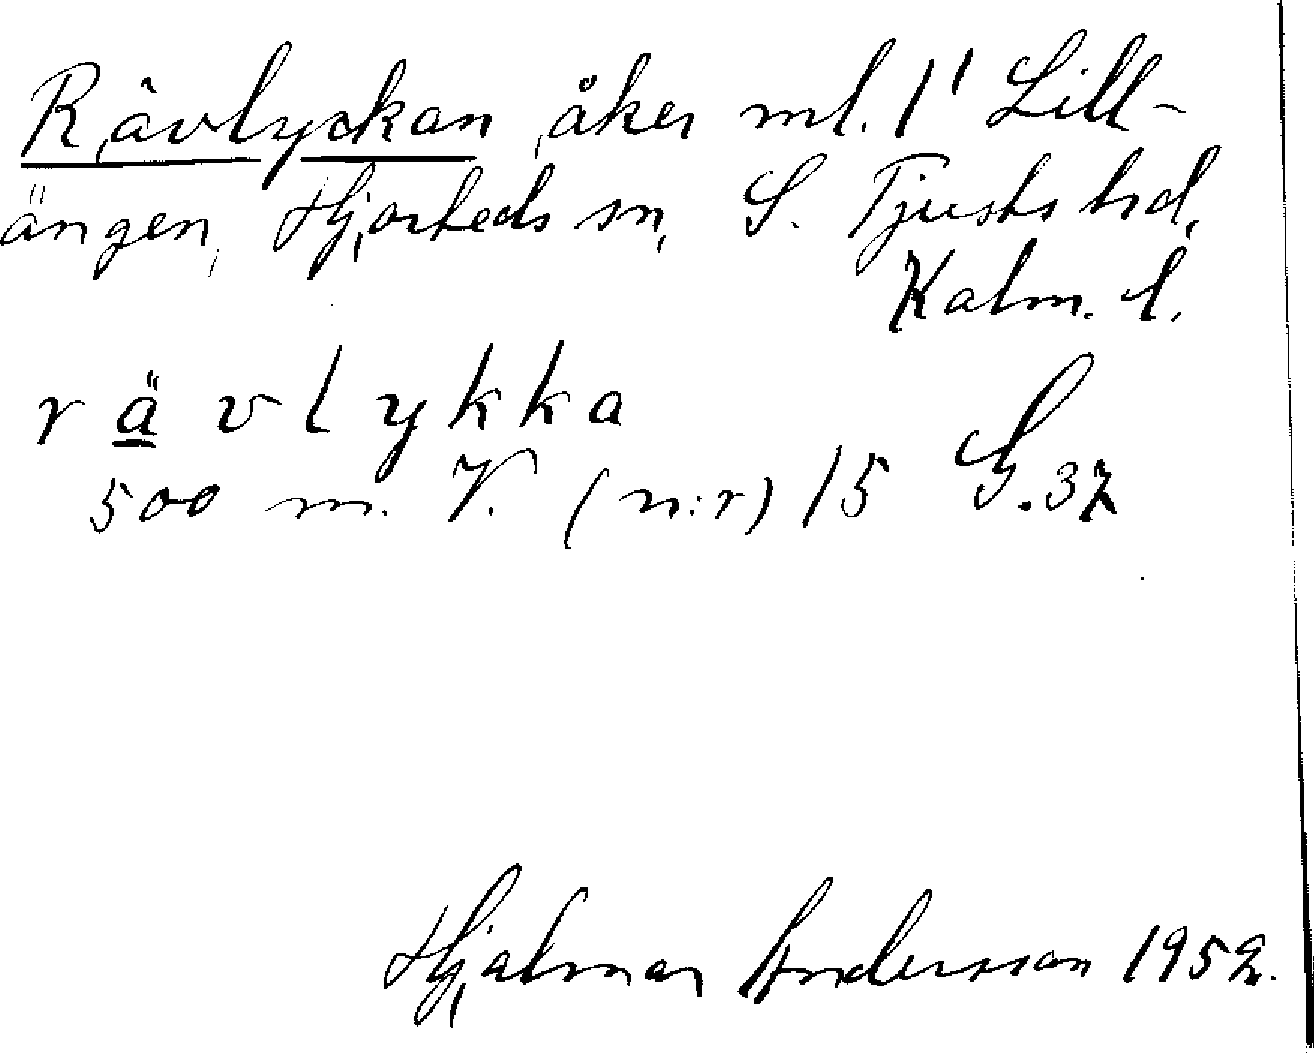 Rävlyckan, åker ml. 1¹ Lill-
ängen, Hjorteds sn, S. Tjusts hd,
Kalm. l.
r ä v l y k k a
500 m. V. (n:r) 15 G.37
Hjalmar Andersson 1952.